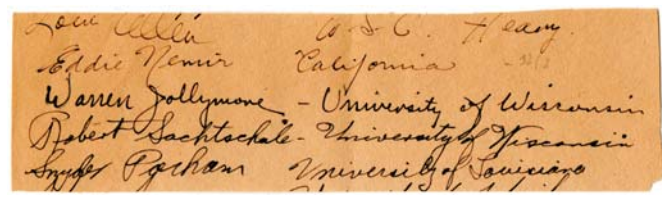 Lou Allen W.S.C. Heavy.
Eddie Nemir California
Warren Jollymore - University of Wisconsin
Robert Sachtschale - University of Wisconsin
Snyder Parham University of Louisiana